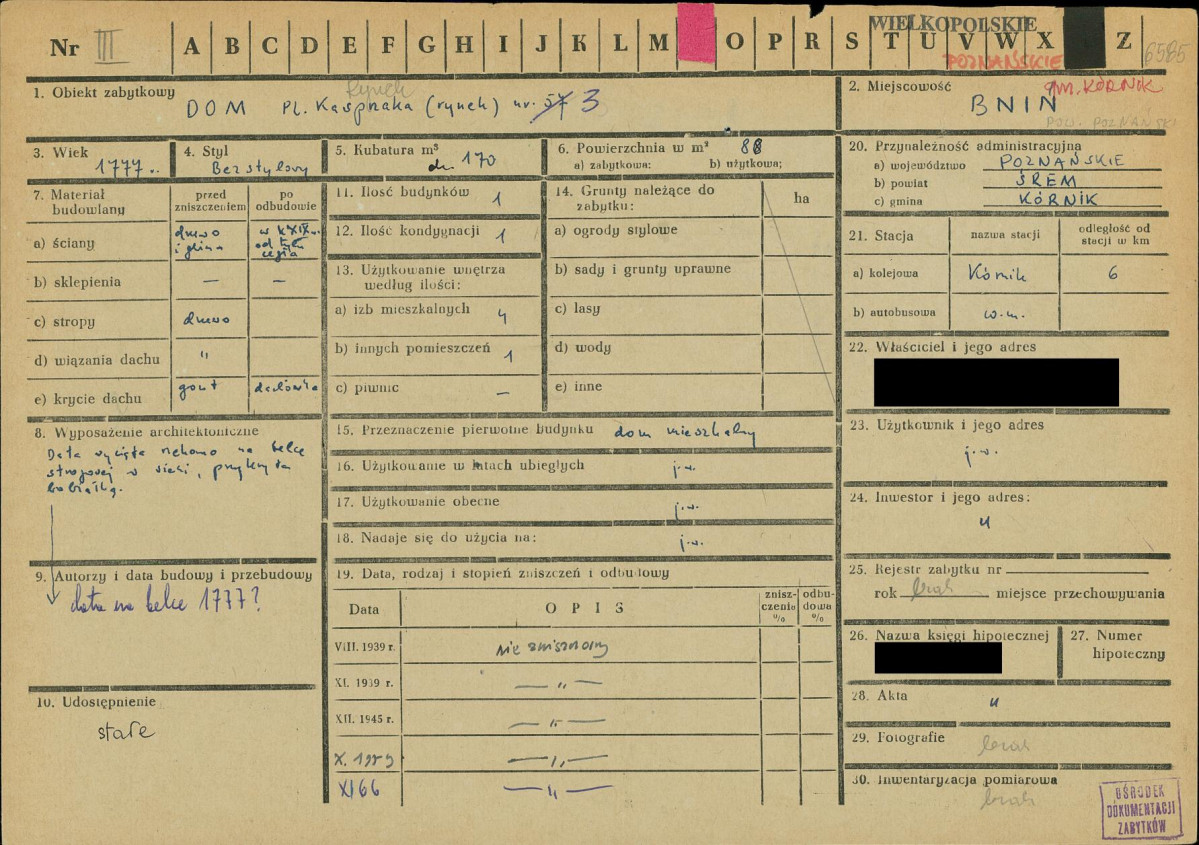 Nr III A B C D E F G H I J K L M O P R S T U V W X Z
WIELKOPOLSKIE
POZNAŃSKIE
6585
1. Obiekt zabytkowy
Rynek
DOM Pl. Kasprzaka (rynek) nr. 57 3
2. Miejscowość
gm. KÓRNIK
BNIN
POW. POZNAŃSKI
3. Wiek
1777 r.
4. Styl
Bezstylowy
5. Kubatura m³
170
6. Powierzchnia w m² 88
a) zabytkowa: b) użytkowa:
20. Przynależność administracyjna
a) województwo POZNAŃSKIE
b) powiat ŚREM
c) gmina KÓRNIK
7. Materiał budowlany
przed zniszczeniem
po odbudowie
a) ściany
drewo i glina
w XIX w. od tyłu cegła
b) sklepienia — —
c) stropy drewo
d) wiązania dachu "
e) krycie dachu gont dachówka
11. Ilość budynków 1
12. Ilość kondygnacji 1
13. Użytkowanie wnętrza
według ilości:
a) izb mieszkalnych 4
b) innych pomieszczeń 1
c) piwnic —
14. Grunty należące do
zabytku:
ha
a) ogrody stylowe
b) sady i grunty uprawne
c) lasy
d) wody
e) inne
21. Stacja
nazwa stacji
odległość od
stacji w km
a) kolejowa Kórnik 6
b) autobusowa w.m.
22. Właściciel i jego adres
23. Użytkownik i jego adres
j.w.
24. Inwestor i jego adres:
"
8. Wyposażenie architektoniczne
Data wycięta rzekomo na belce
stropowej w sieni, przykryta
bobiałką.
15. Przeznaczenie pierwotne budynku dom mieszkalny
16. Użytkowanie w latach ubiegłych j.w.
17. Użytkowanie obecne j.w.
18. Nadaje się do użycia na: j.w.
9. Autorzy i data budowy i przebudowy
data na belce 1777?
10. Udostępnienie
stałe
19. Data, rodzaj i stopień zniszczeń i odbudowy
Data
OPIS
znisz-
czenia
%
odbu-
dowa
%
VIII. 1939 r. nie zniszczony
XI. 1939 r. — " —
XII. 1945 r. — " —
X. 1959 — " —
XI 66 — " —
25. Rejestr zabytku nr
rok brak miejsce przechowywania
26. Nazwa księgi hipotecznej
27. Numer
hipoteczny
28. Akta "
29. Fotografie brak
30. Inwentaryzacja pomiarowa
brak
OŚRODEK
DOKUMENTACJI
ZABYTKÓW